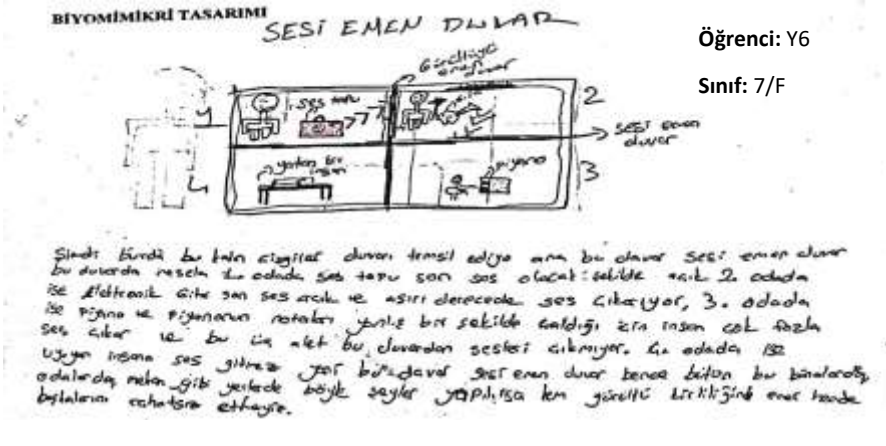 BİYOMİMİKRİ TASARIMI
SESİ EMEN DUVAR
Öğrenci: Y6
Sınıf: 7/F
Gürültüyü
emen
duvar
ses topu
2
sesi emen
duvar
yatan bir
insan
piyano
3
Şimdi burda bu kalın çizgiler duvarı temsil ediyo ama bu duvar sesi emen duvar
bu duvarda mesela 1. odada ses topu son ses olacak şekilde açık 2. odada
ise elektronik gitar son ses açık ve aşırı derecede ses çıkarıyor, 3. odada
ise piyano ve piyanonun notaları yanlış bir şekilde çaldığı için insan çok fazla
ses çıkar ve bu üç alet bu duvardan sesleri çıkmıyor. 4. odada ise
uyuyan insana ses gitmez yani bu duvar sesi emen duvar bence bütün bu binalarda,
odalarda, mekan gibi yerlerde böyle şeyler yapılırsa hem gürültü kirliliğini emer hemde
başkalarını rahatsız etmeyiz.